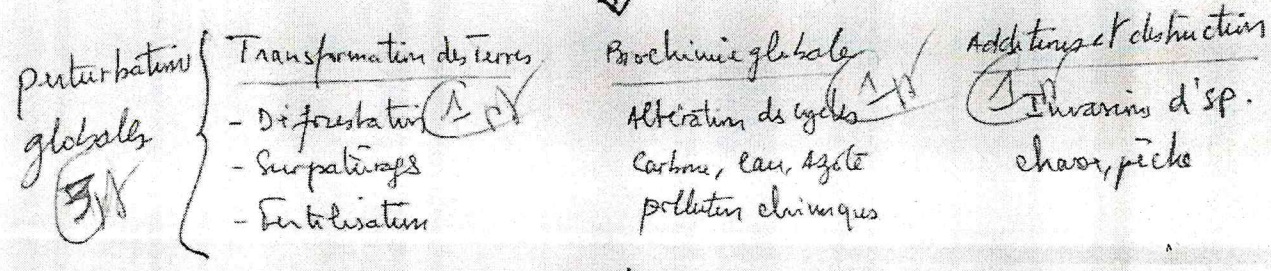 perturbations
globales
3 pts
Transformation des Terres
- Déforestation 1 pt
- Surpaturage
- Fertilisation
Biochimie globale
1 pt
Altération ds cycles
Carbone, eau, Azote
pollution chimiques
Additions et destruction
1 pt Invasions d'sp.
chasse, pêche